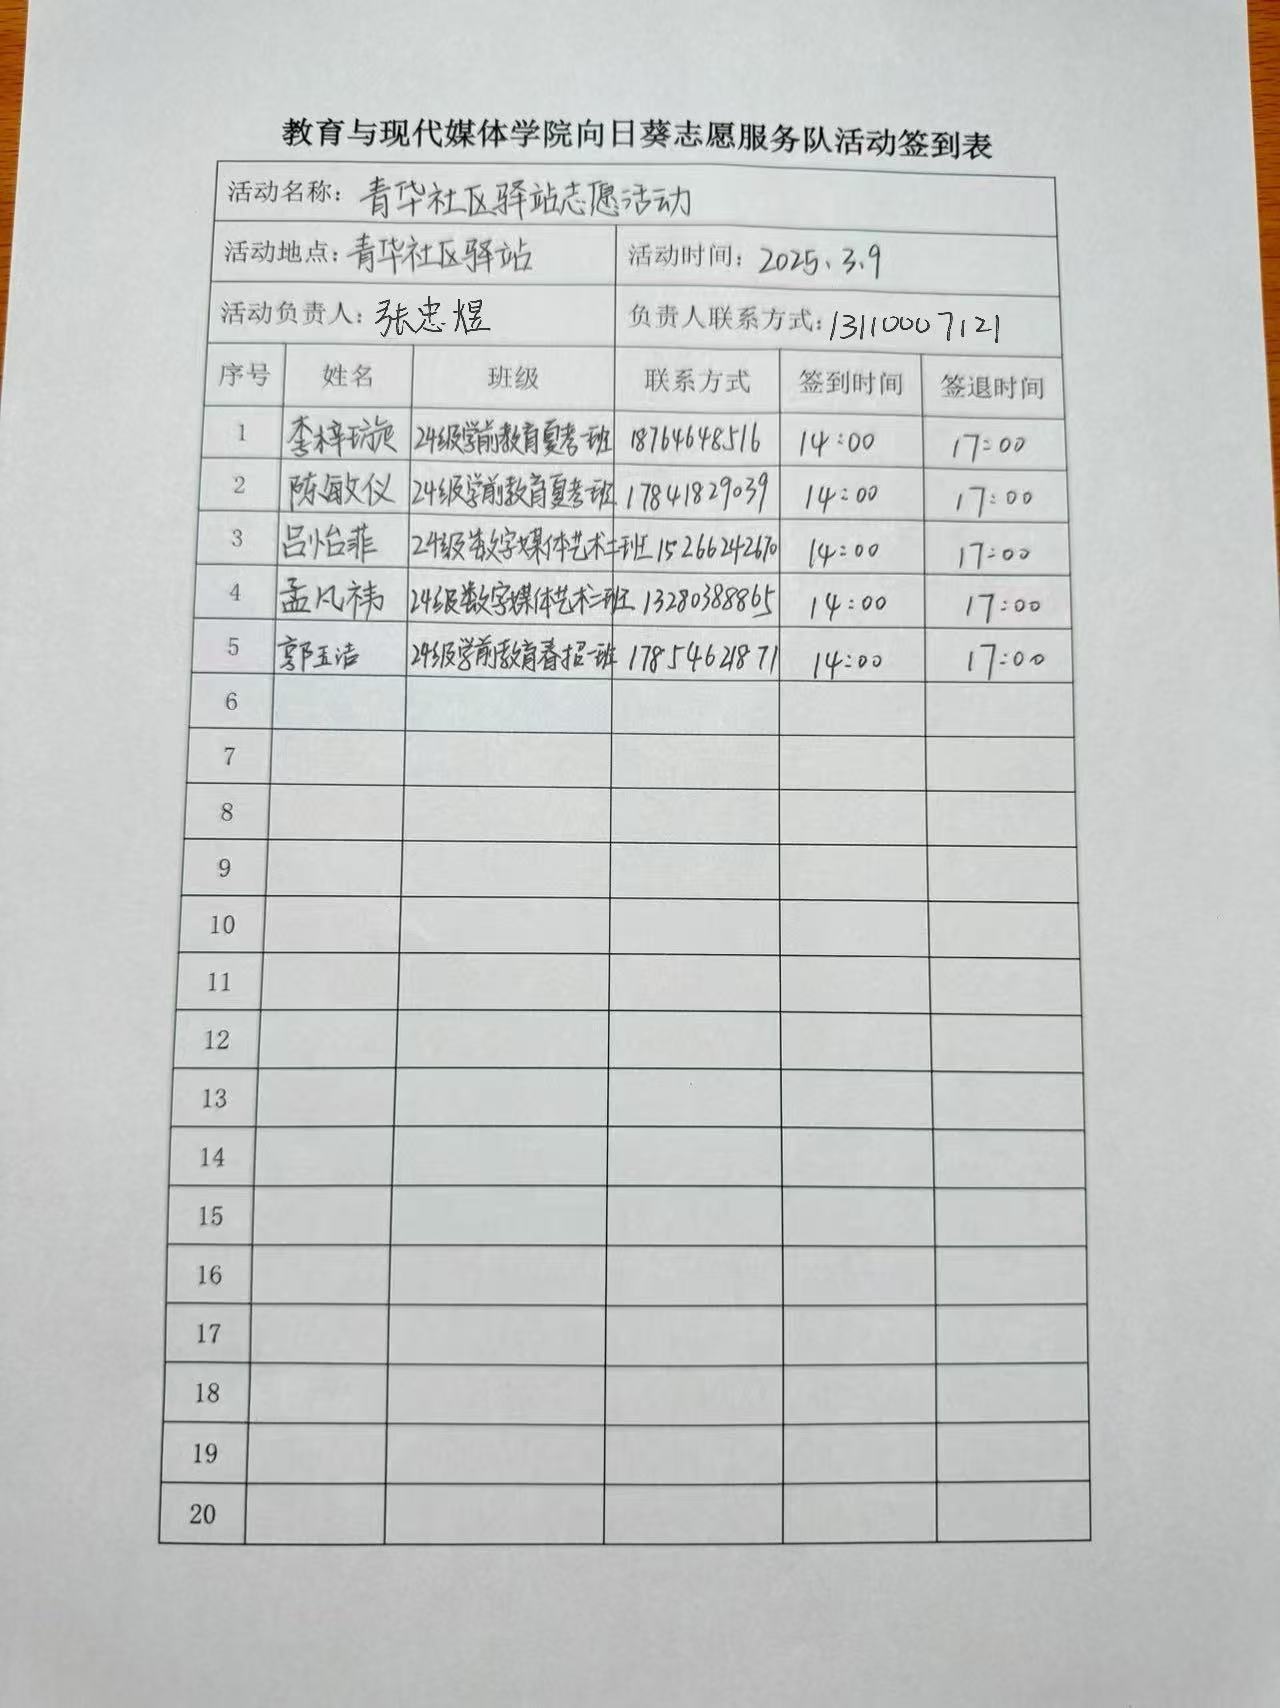 教育与现代媒体学院向日葵志愿服务队活动签到表
活动名称：青华社区驿站志愿活动
活动地点：青华社区驿站 活动时间：2025.3.9
活动负责人：张忠煜 负责人联系方式：13110007121
序号 姓名 班级 联系方式 签到时间 签退时间
1 李梓璇 24级学前教育夏考一班 18764648516 14:00 17:00
2 陈敏仪 24级学前教育夏考一班 17841829039 14:00 17:00
3 吕怡菲 24级数字媒体艺术二班 15266242670 14:00 17:00
4 孟凡祎 24级数字媒体艺术二班 13280388865 14:00 17:00
5 郭玉洁 24级学前教育春招一班 17854621871 14:00 17:00
6
7
8
9
10
11
12
13
14
15
16
17
18
19
20